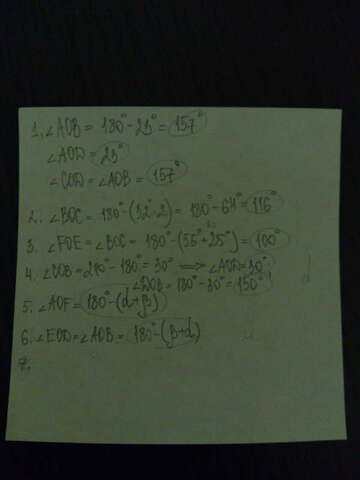 1. ∠AOB = 180° - 23° = 157°
∠AOD = 23°
∠COD = ∠AOB = 157°
2. ∠BOC = 180° - (32°·2) = 180° - 64° = 116°
3. ∠FOE = ∠BOC = 180° - (55° + 25°) = 100°
4. ∠COB = 210° - 180° = 30° ⟹ ∠AOD = 30°
∠DOB = 180° - 30° = 150°
5. ∠AOF = 180° - (α + β)
6. ∠EOD = ∠AOB = 180° - (β + α)
7.